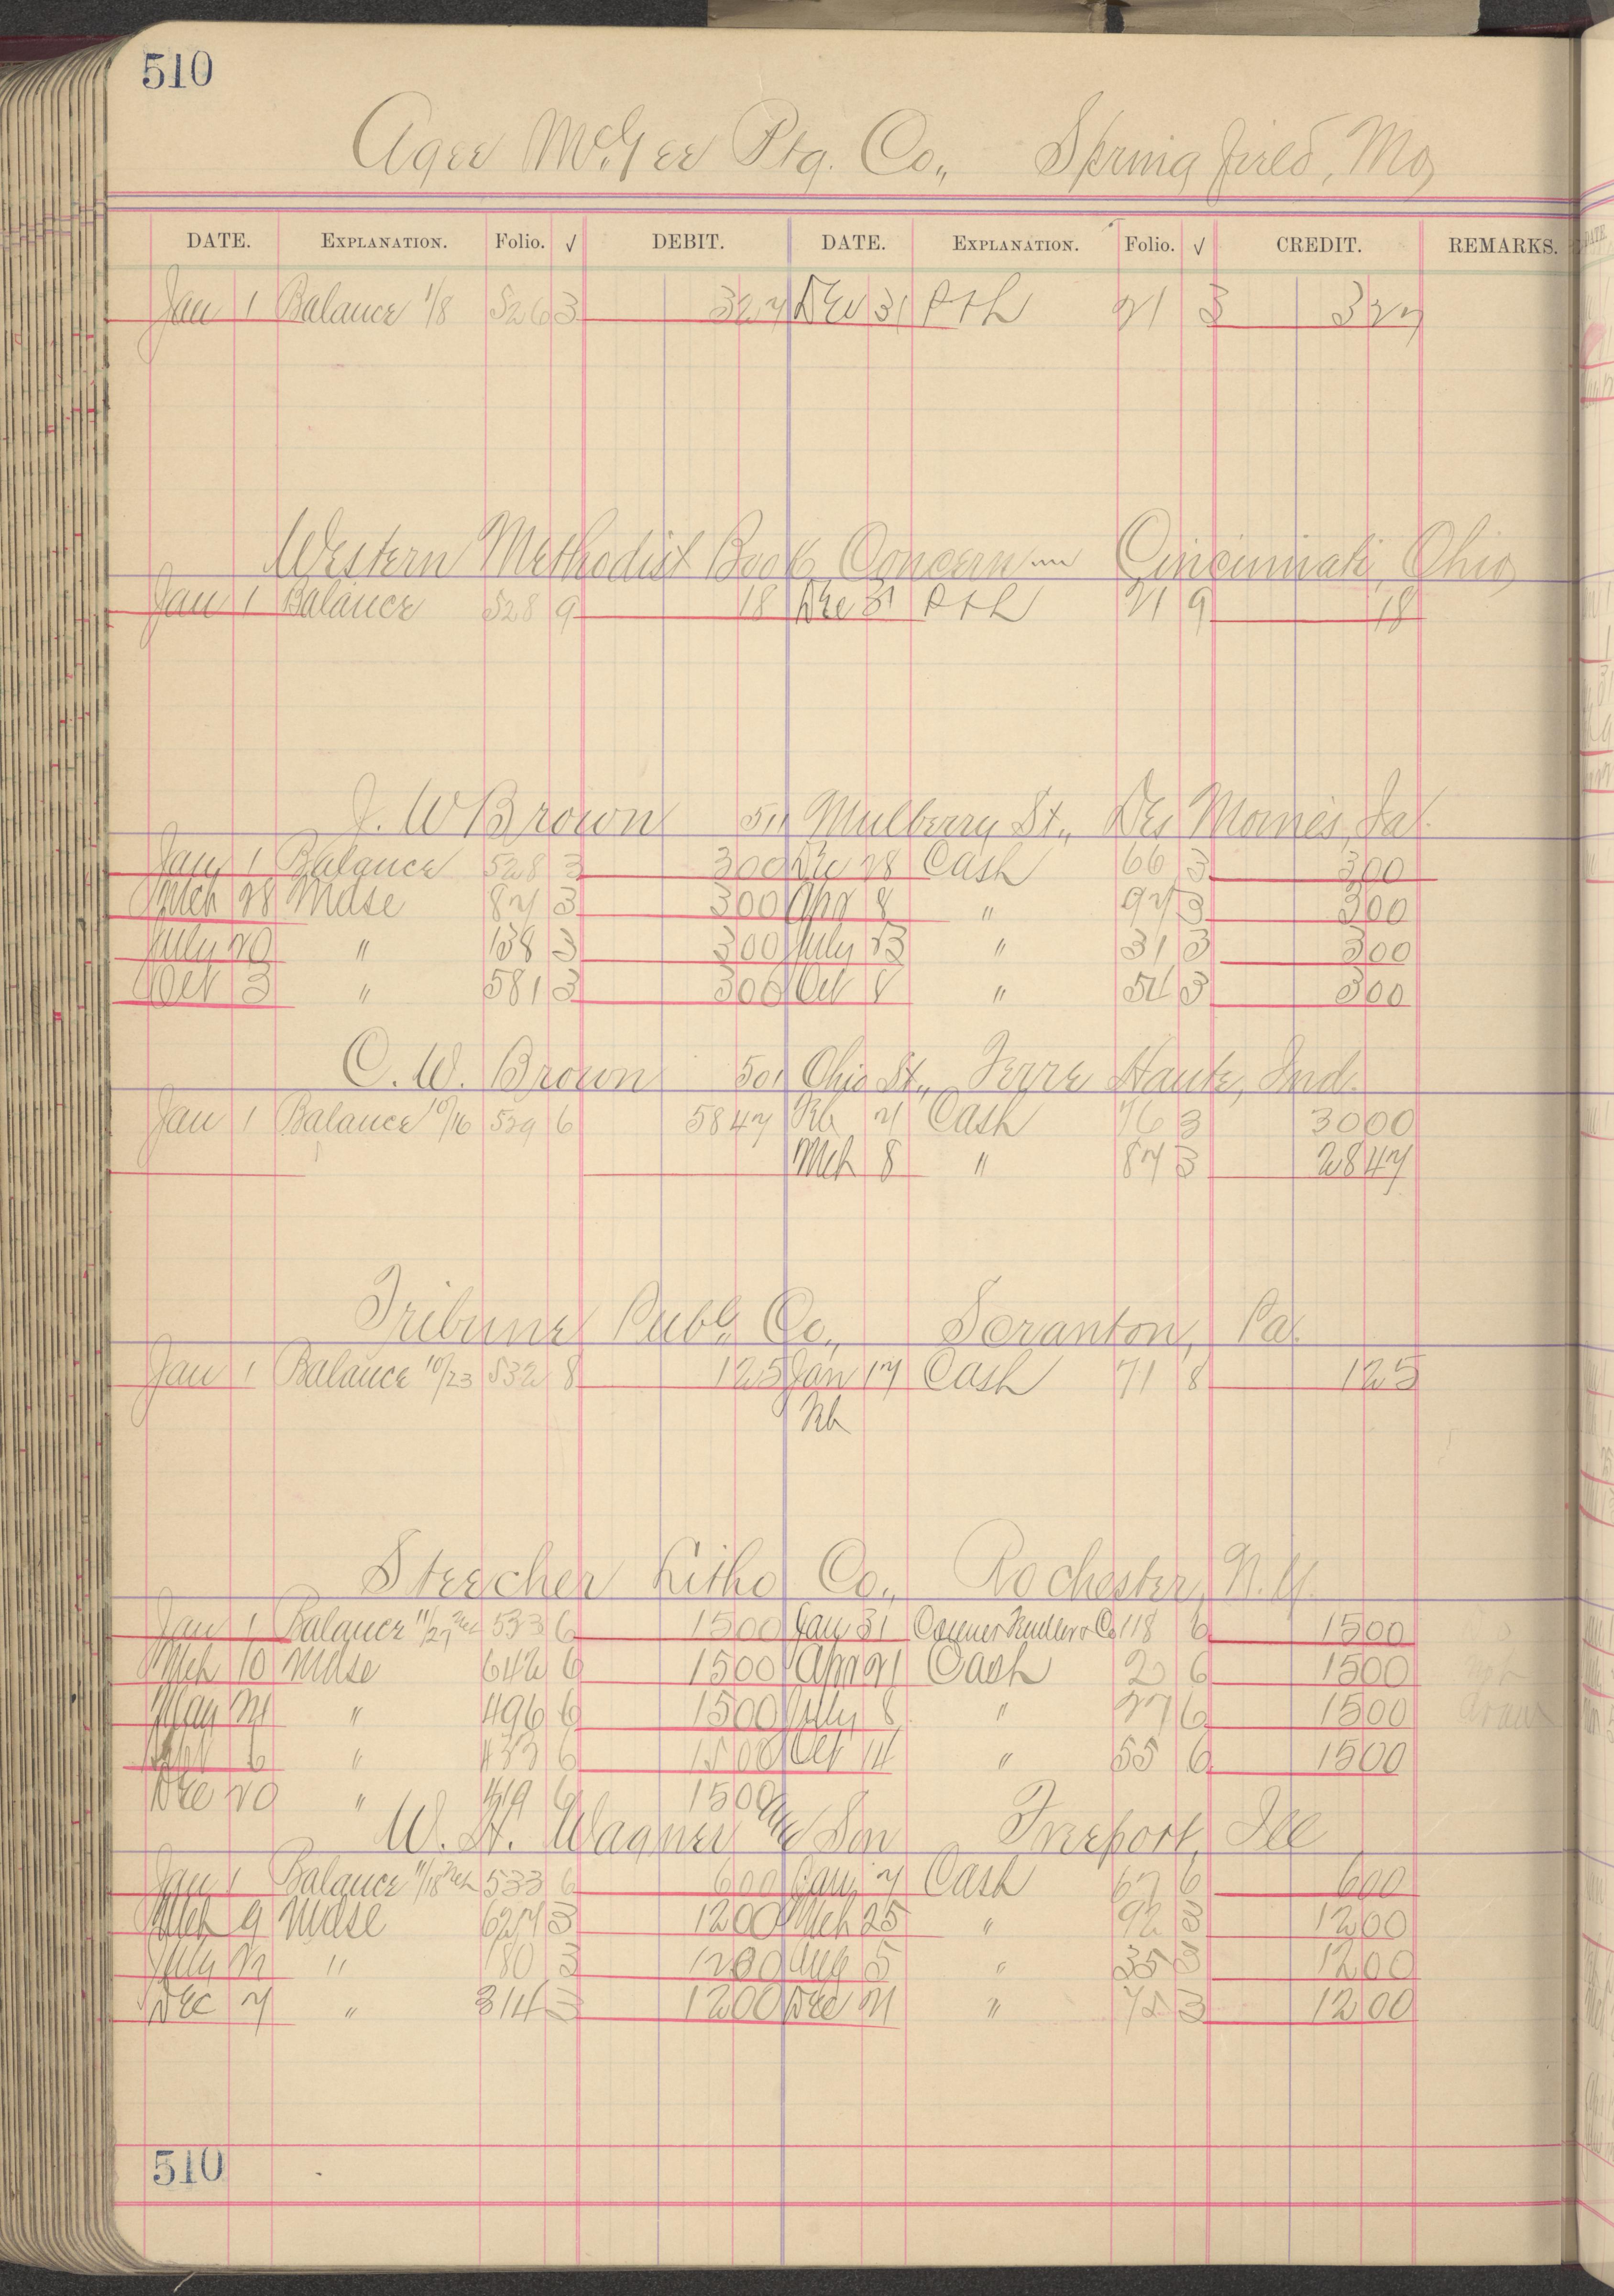 510
Agee McGee Ptg. Co., Springfield, Mo,
DATE. EXPLANATION. Folio. √ DEBIT. DATE. EXPLANATION. Folio. √ CREDIT. REMARKS.
Jan 1 Balance 1/8 526 3 327 Dec 31 P+L 21 3 327
Western Methodist Book Concern Cincinnati, Ohio
Jan 1 Balance 528 9 18 Dec 31 P+L 21 9 18
J. W Brown 511 Mulberry St., Des Moines, Ia.
Jan 1 Balance 528 3 300 Dec 28 Cash 66 3 300
Mch 28 Mdse 87 3 300 Apr 8 " 97 3 300
July 20 " 138 3 300 July 23 " 31 3 300
Oct 3 " 581 3 300 Oct 8 " 54 3 300
C. W. Brown 501 Ohio St., Terre Haute, Ind.
Jan 1 Balance 10/16 529 6 5847 Feb 21 Cash 76 3 3000
Mch 8 " 87 3 2847
Tribune Publg Co., Scranton, Pa.
Jan 1 Balance 10/23 532 8 125 Jan 17 Cash 71 8 125
Feb
Steecher Litho Co., Rochester, N.Y.
Jan 1 Balance 11/27 533 6 1500 Jan 31 118 6 1500
Mch 10 Mdse 642 6 1500 Apr 21 Cash 2 6 1500
May 21 " 496 6 1500 July 8 " 27 6 1500
6 " 433 6 1500 Oct 14 " 55 6 1500
Dec 20 " 419 6 1500
W. H. Wagner & Son Freeport, Ill
Jan 1 Balance 11/18 533 6 600 Jan 7 Cash 67 6 600
Mch 9 Mdse 627 3 1200 Mch 25 " 92 3 1200
July 22 " 180 3 1200 Aug 5 " 35 3 1200
Dec 7 " 314 3 1200 Dec 21 " 72 3 1200
510